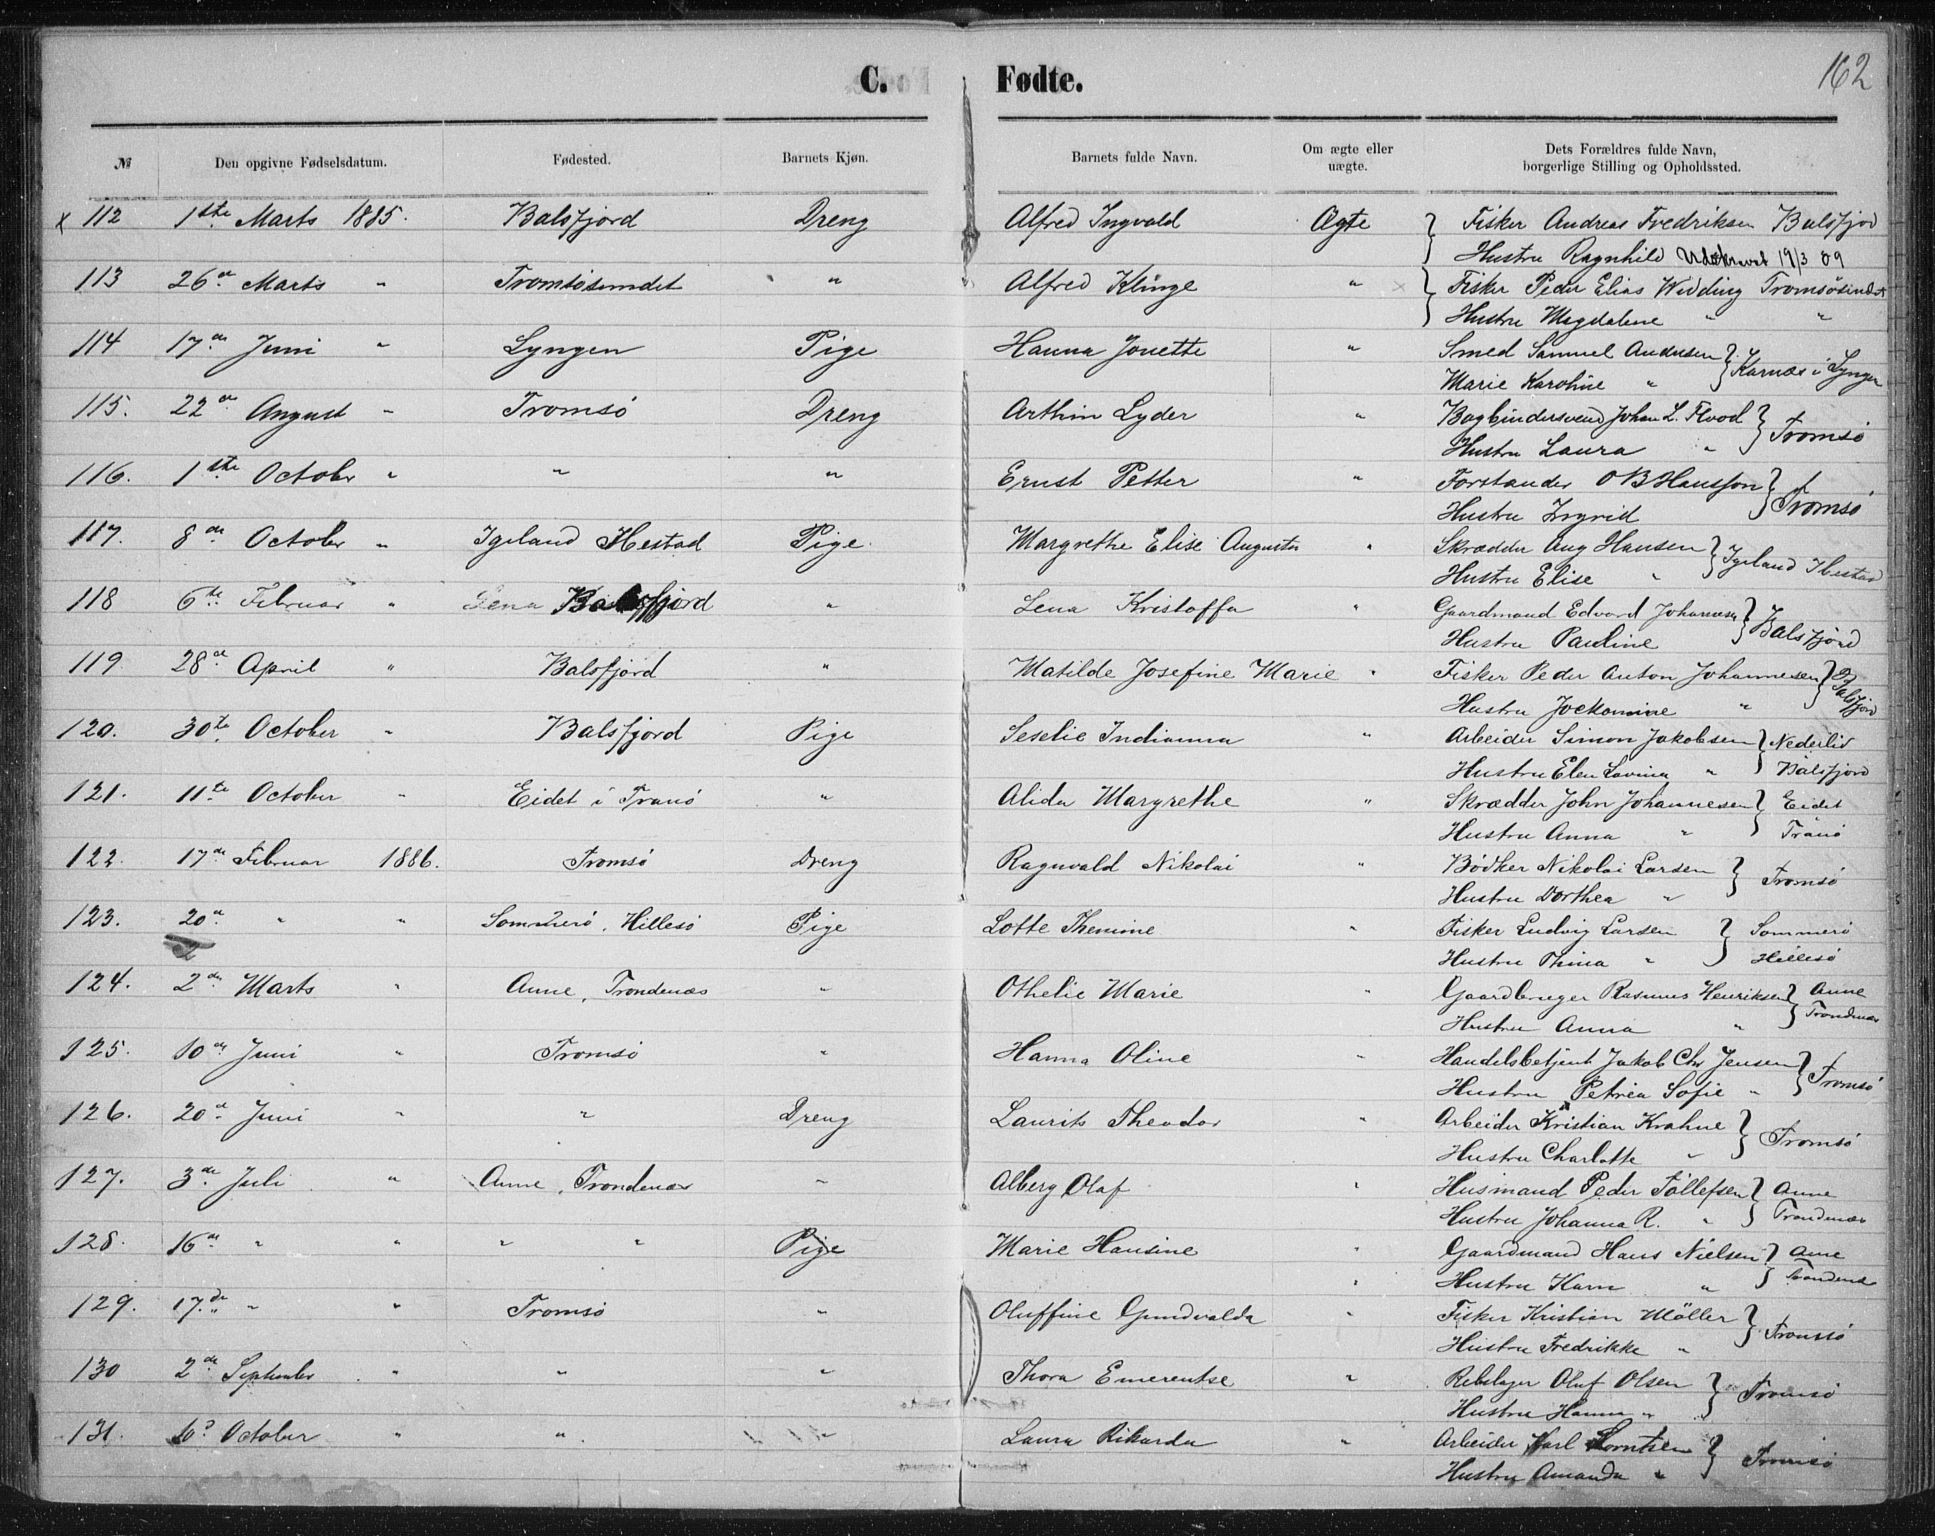 162
C. Fødte.
№ Den opgivne Fødselsdatum. Fødested. Barnets Kjøn. Barnets fulde Navn. Om ægte eller uægte. Dets Forældres fulde Navn, borgerlige Stilling og Opholdssted.
x 112 1ste Marts 1885. Balsfjord Dreng Alfred Ingvald Ægte } Fisker Andreas Fredriksen Balsfjor
Hustru Ragnhild Udskrevet 19/3 09
113 26de Marts " Tromsøsundet " Alfred Klinge " x } Fisker Peder Elias Widding Tromsøsundet
Hustru Magdalene " "
114 17de Juni " Lyngen Pige Hanna Jonette " Smed Samuel Andersen } Karnæs i Lyngen
Marie Karoline "
115. 22de August " Tromsø Dreng Arthim Lyder " Bogbindersvend Johan L. Flood } Tromsø
Hustru Laura "
116. 1ste October " " " Ernst Petter " Forstander O B Hansson } Tromsø
Hustru Ingrid
117. 8de October " Igeland Ibestad Pige. Margrethe Elise Augusta " Skrædder Aug Hansen } Igeland Ibestad
Hustru Elise "
118 6te Februar " Lena Balsfjord " Lena Kristoffa " Gaardmand Edvard Johannesen } Balsfjord
Hustru Pauline
119. 28de April " Balsfjord " Matilde Josefine Marie " Fisker Peder Anton Johannesen } Balsfjord
Hustru Jockomine "
120. 30te October " Balsfjord Pige Seselie Indianna " Arbeider Simon Jakobsen } Nederlid
Hustru Elen Lovina " Balsfjord
121. 11te October " Eidet i Tranø " Alida Margrethe " Skrædder John Johannesen } Eidet
Hustru Anna " Tranø
122. 17de Februar 1886. Tromsø Dreng Ragnvald Nikolai " Bødker Nikolai Larsen } Tromsø
Hustru Dorthea "
123. 20de " " Sommerø, Hillesø Pige Lotte Thenime " Fisker Ludvig Larsen } Sommerø
Hustru Thina " Hillesø
124. 2den Marts " Anne, Trondenæs " Othelie Marie " Gaardbruger Rasmus Henriksen } Anne
Hustru Anna " Trondenæs
125. 10de Juni " Tromsø " Hanna Oline " Handelsbetjent Jakob Chr Jensen } Tromsø
Hustru Petrea Sofie "
126. 20de Juni " " Dreng Laurits Theodor " Arbeider Kristian Krahne } Tromsø
Hustru Charlotte "
127. 3de Juli " Anne, Trondenæs " Alberg Olaf " Husmand Peder Tollefsen } Anne
Hustru Johanna R. " Trondenæs
128. 16de " " " " Pige Marie Hansine " Gaardmand Hans Nielsen } Anne
Hustru Karn " Trondenæs
129. 17.de " " Tromsø " Oluffine Gundvalda " Fisker Kristian Møller } Tromsø
Hustru Fredrikke "
130 2den September " " " Thora Emerentse " Rebslager Oluf Olsen } Tromsø
Hustru Hanna "
131. 10d October " " Laura Rikarda " Arbeider Karl Lorntsen } Tromsø
Hustru Amanda "